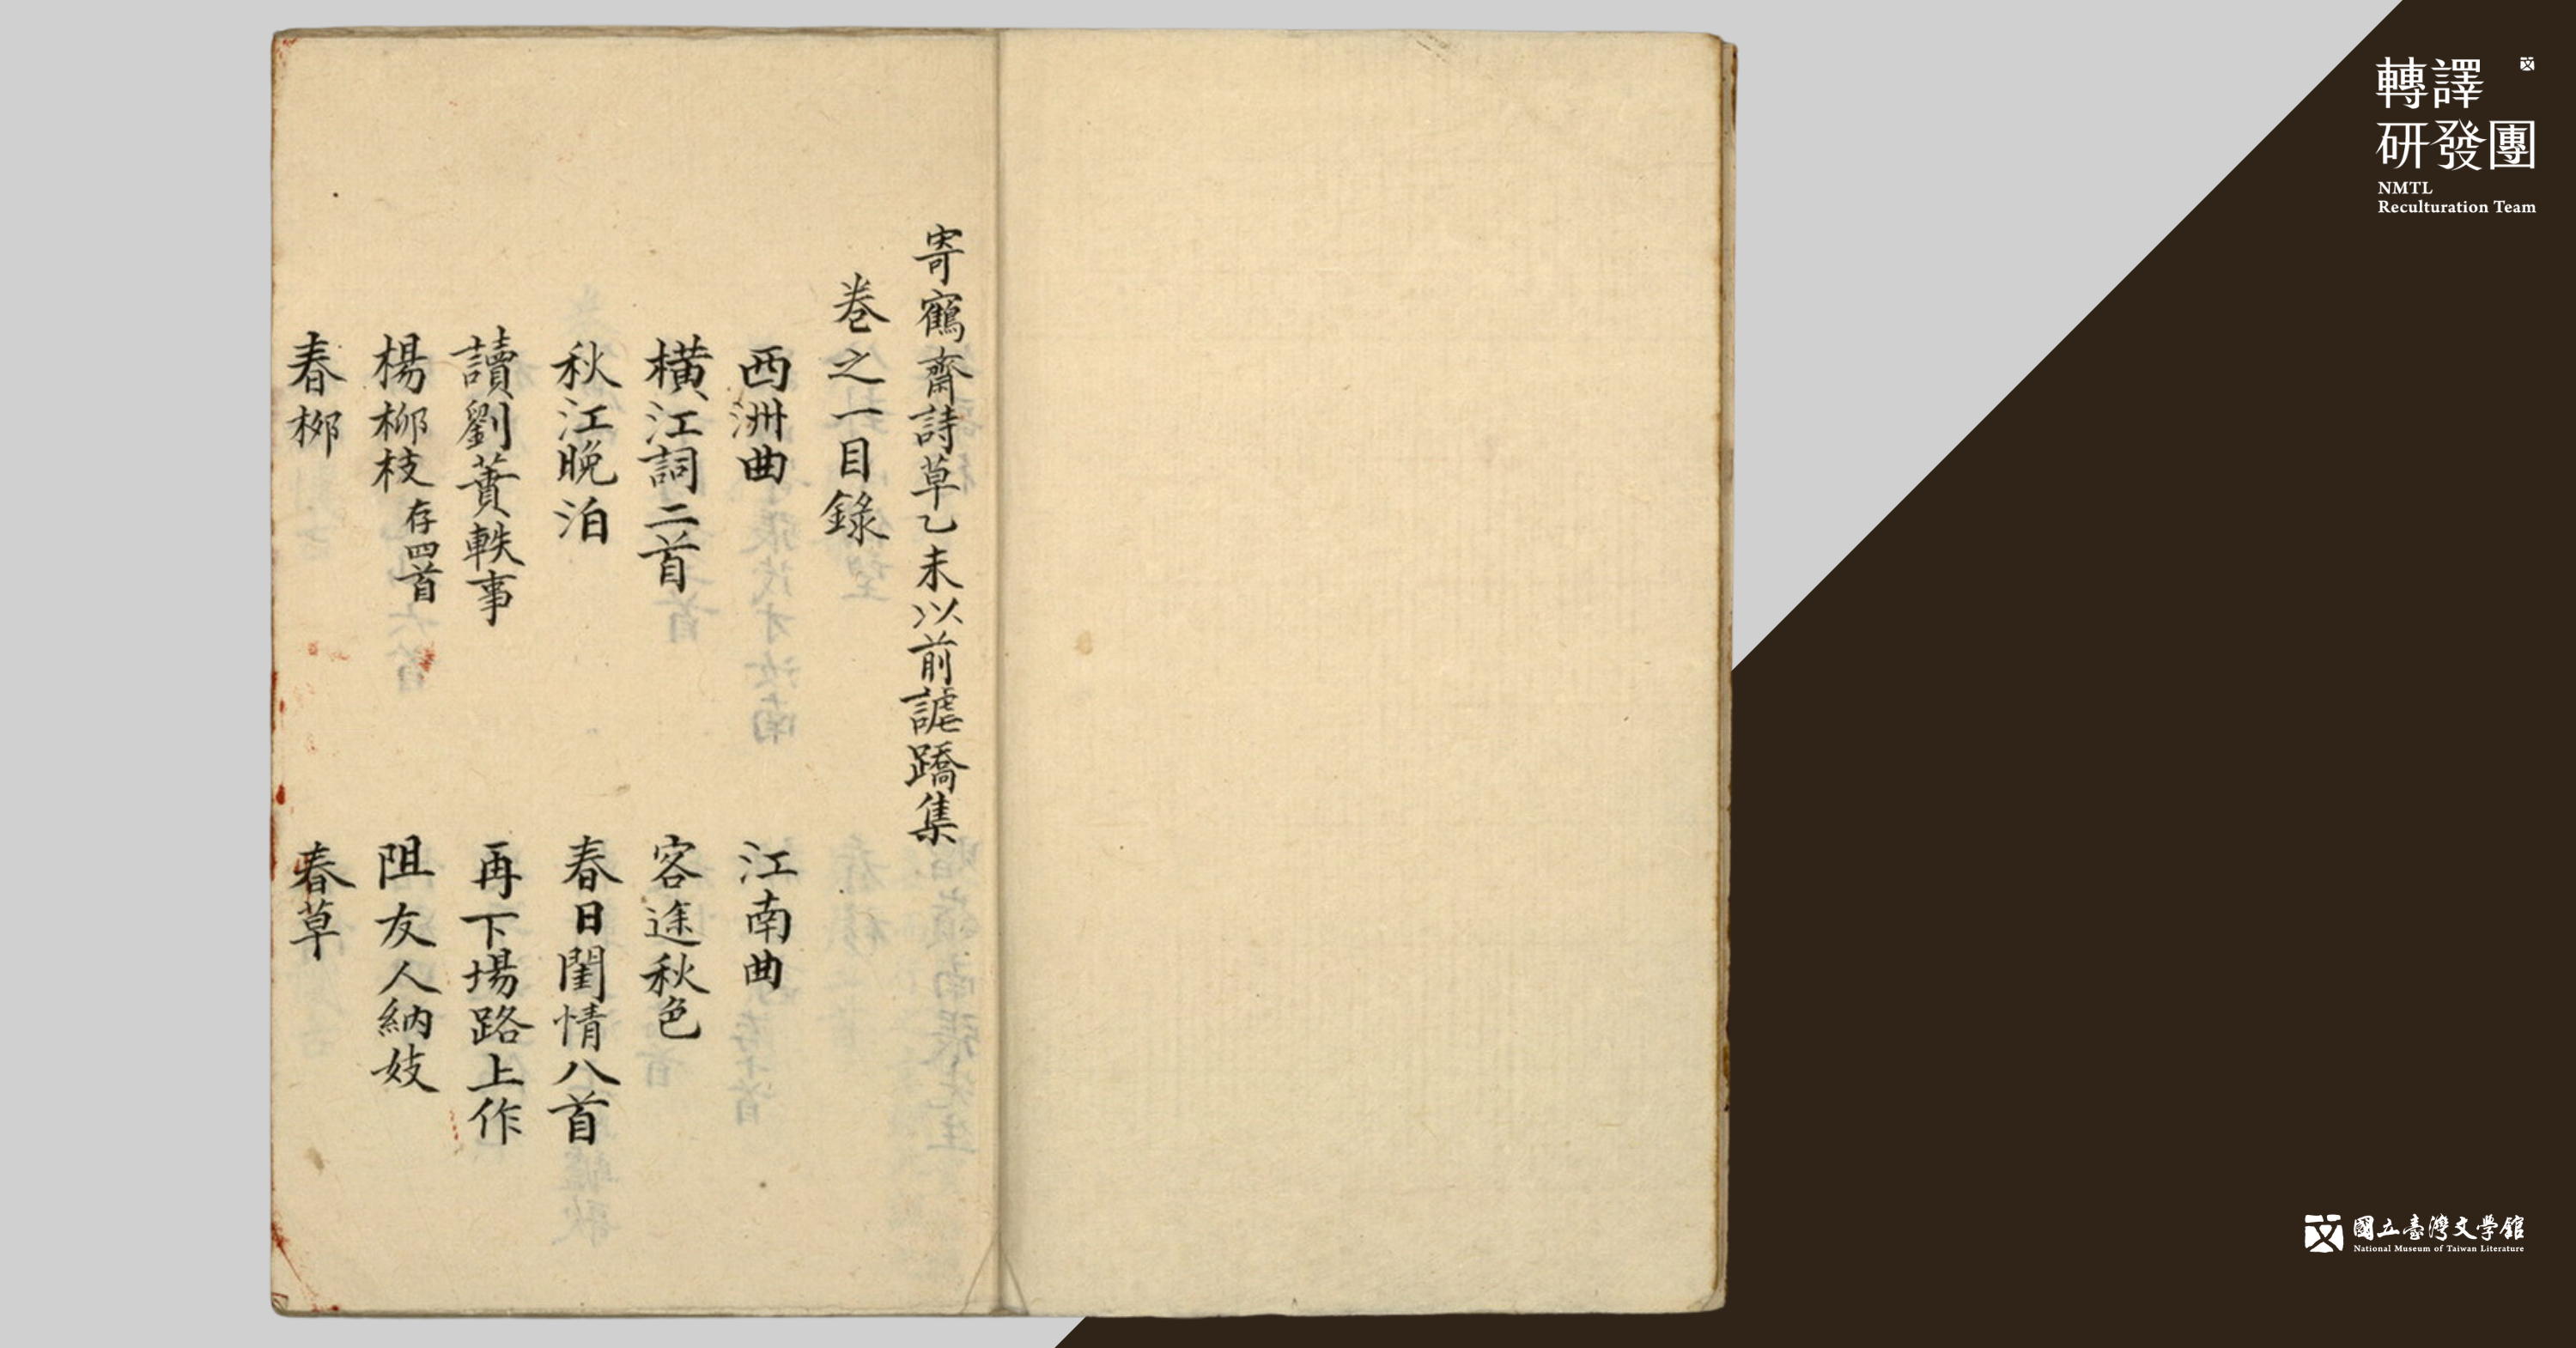 寄鶴齋詩草乙未以前謔蹻集
卷之一目錄
西洲曲
江南曲
橫江詞二首
客途秋色
秋江晚泊
春日閨情八首
讀劉蕡軼事
再下場路上作
楊柳枝 存四首
阻友人納妓
春柳
春草
轉譯
研發團
NMTL
Reculturation Team
國立臺灣文學館
National Museum of Taiwan Literature